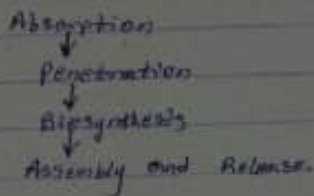 Absorption
↓
Penetration
↓
Biosynthesis
↓
Assembly and Release.